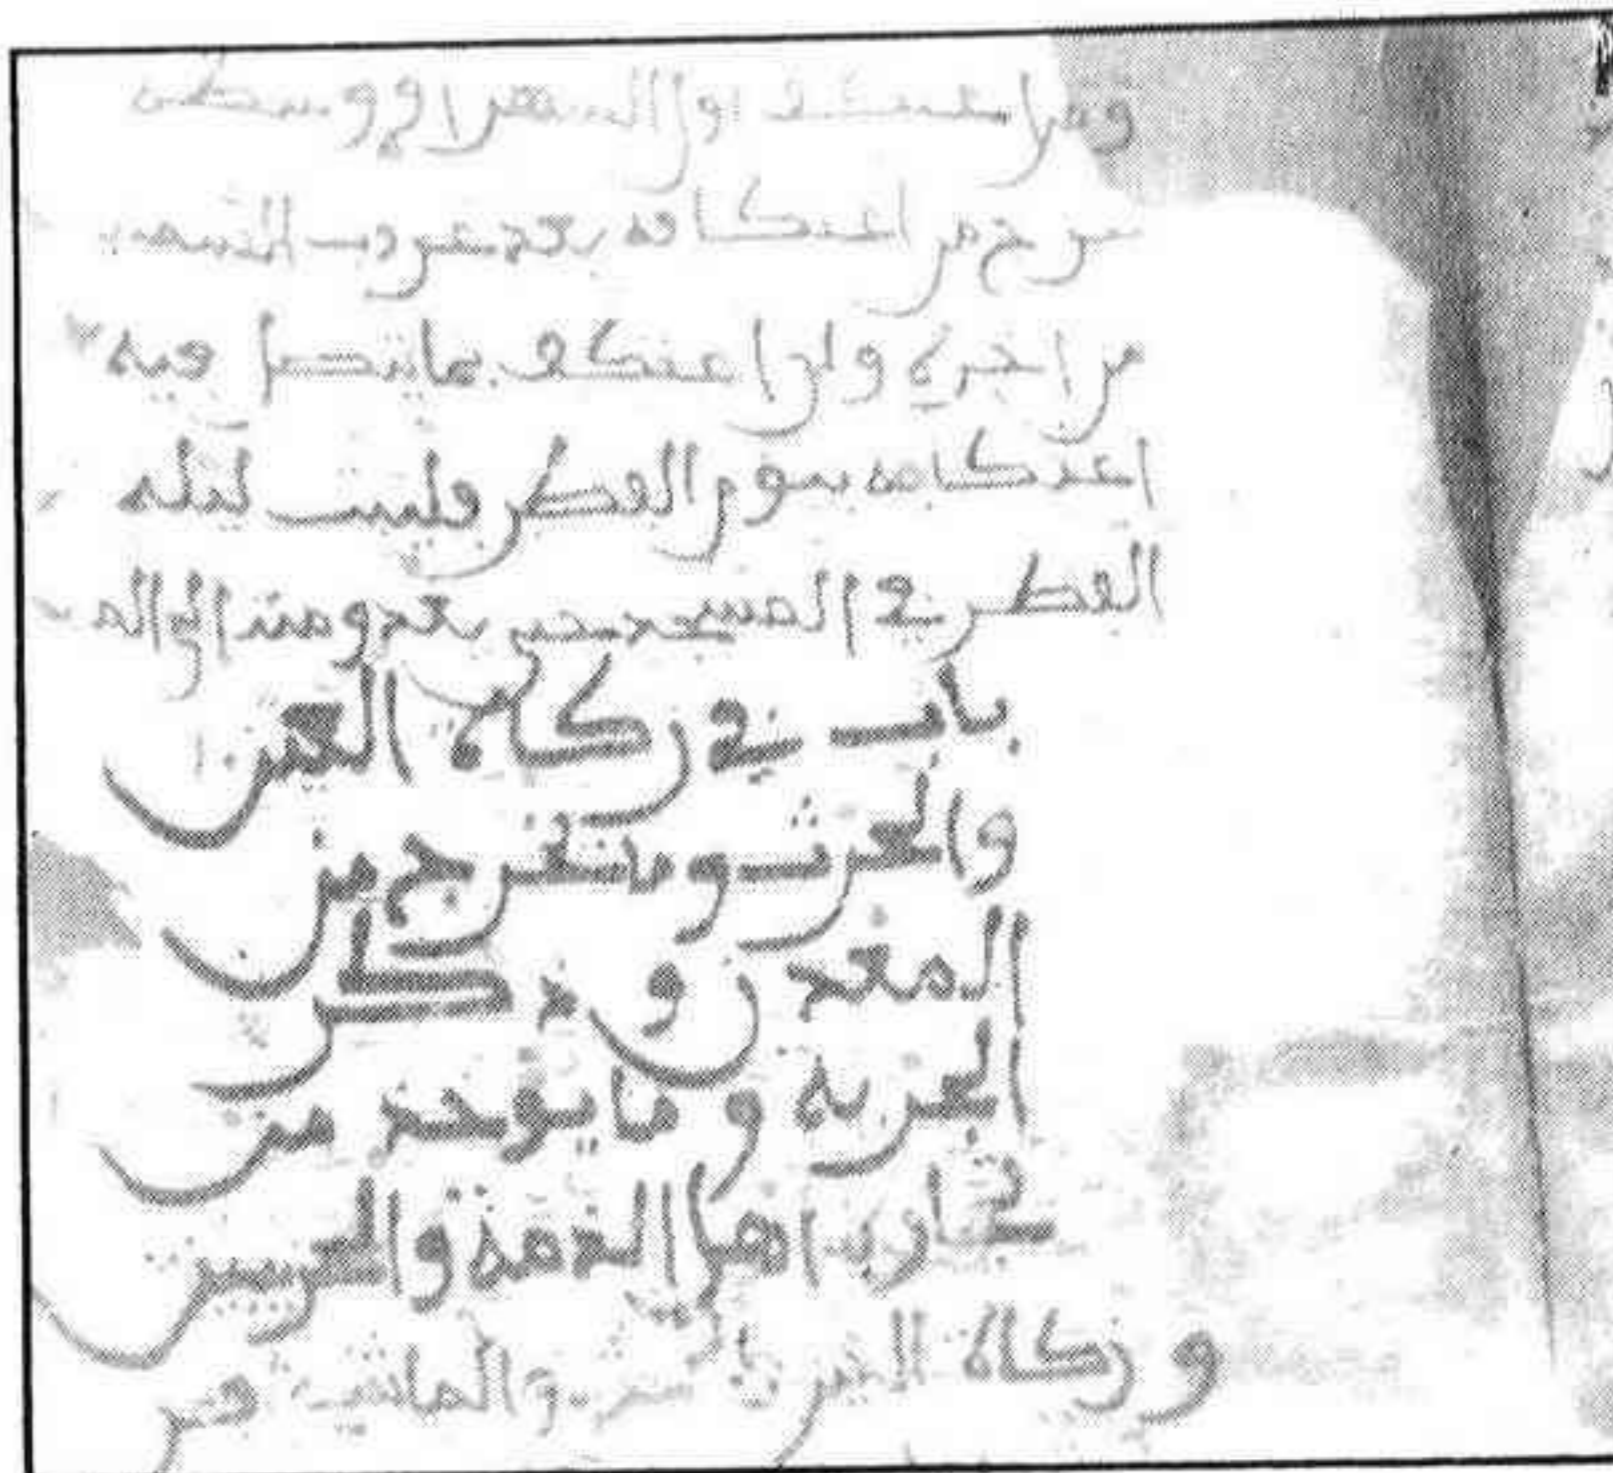 ومن اعتكف اول الشهر او وسطه
خرج من اعتكافه بعد غروب الشمس
من اخره وان اعتكف بما يتصل فيه
اعتكافه بيوم الفطر فليبت ليلة
الفطر في المسجد حتى يغدو منه الى الم
باب في زكاة العين
والحرث وما يخرج من
المعدن وذكر
الجزية وما يوخذ من
تجار اهل الذمة والحربيين
وزكاة العين والحرث والماشية فر